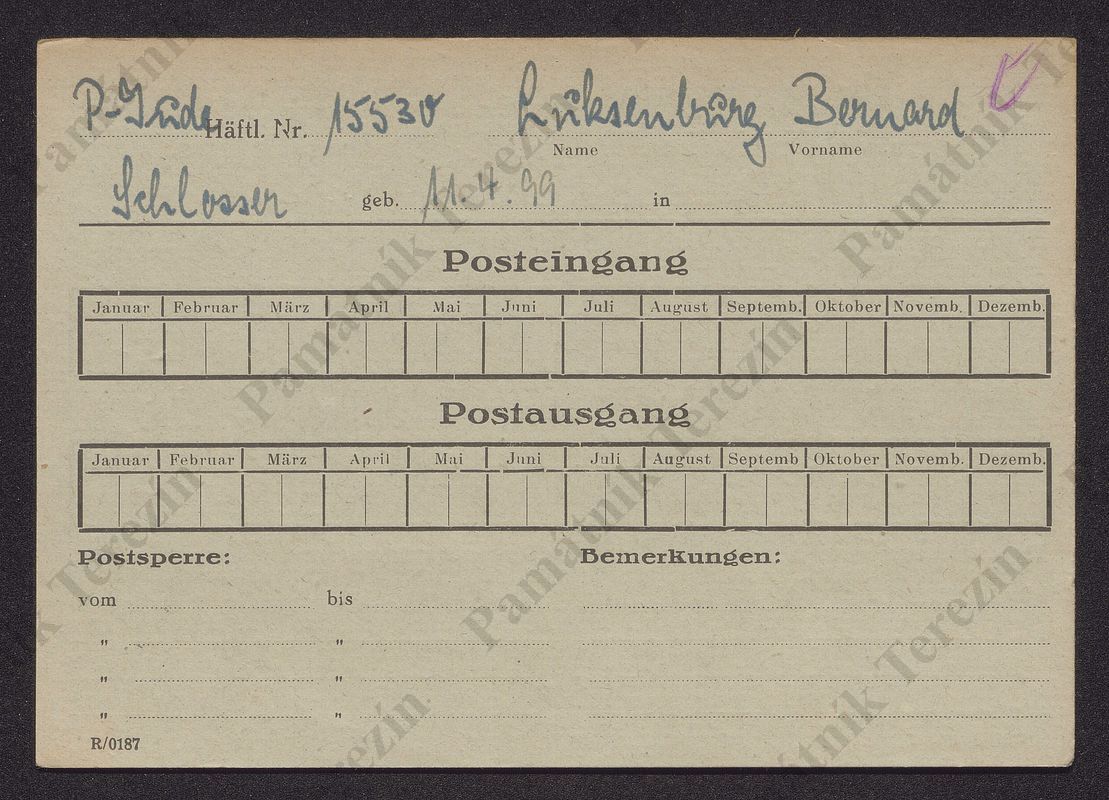 P-Jude Häftl. Nr. 15530 Luksenburg Bernard
Name Vorname
Schlosser geb. 11.4.99 in
Posteingang
Januar Februar März April Mai Juni Juli August Septemb. Oktober Novemb. Dezemb.
Postausgang
Januar Februar März April Mai Juni Juli August Septemb Oktober Novemb. Dezemb.
Postsperre: Bemerkungen:
vom bis
" "
" "
" "
R/0187
Památník Terezín